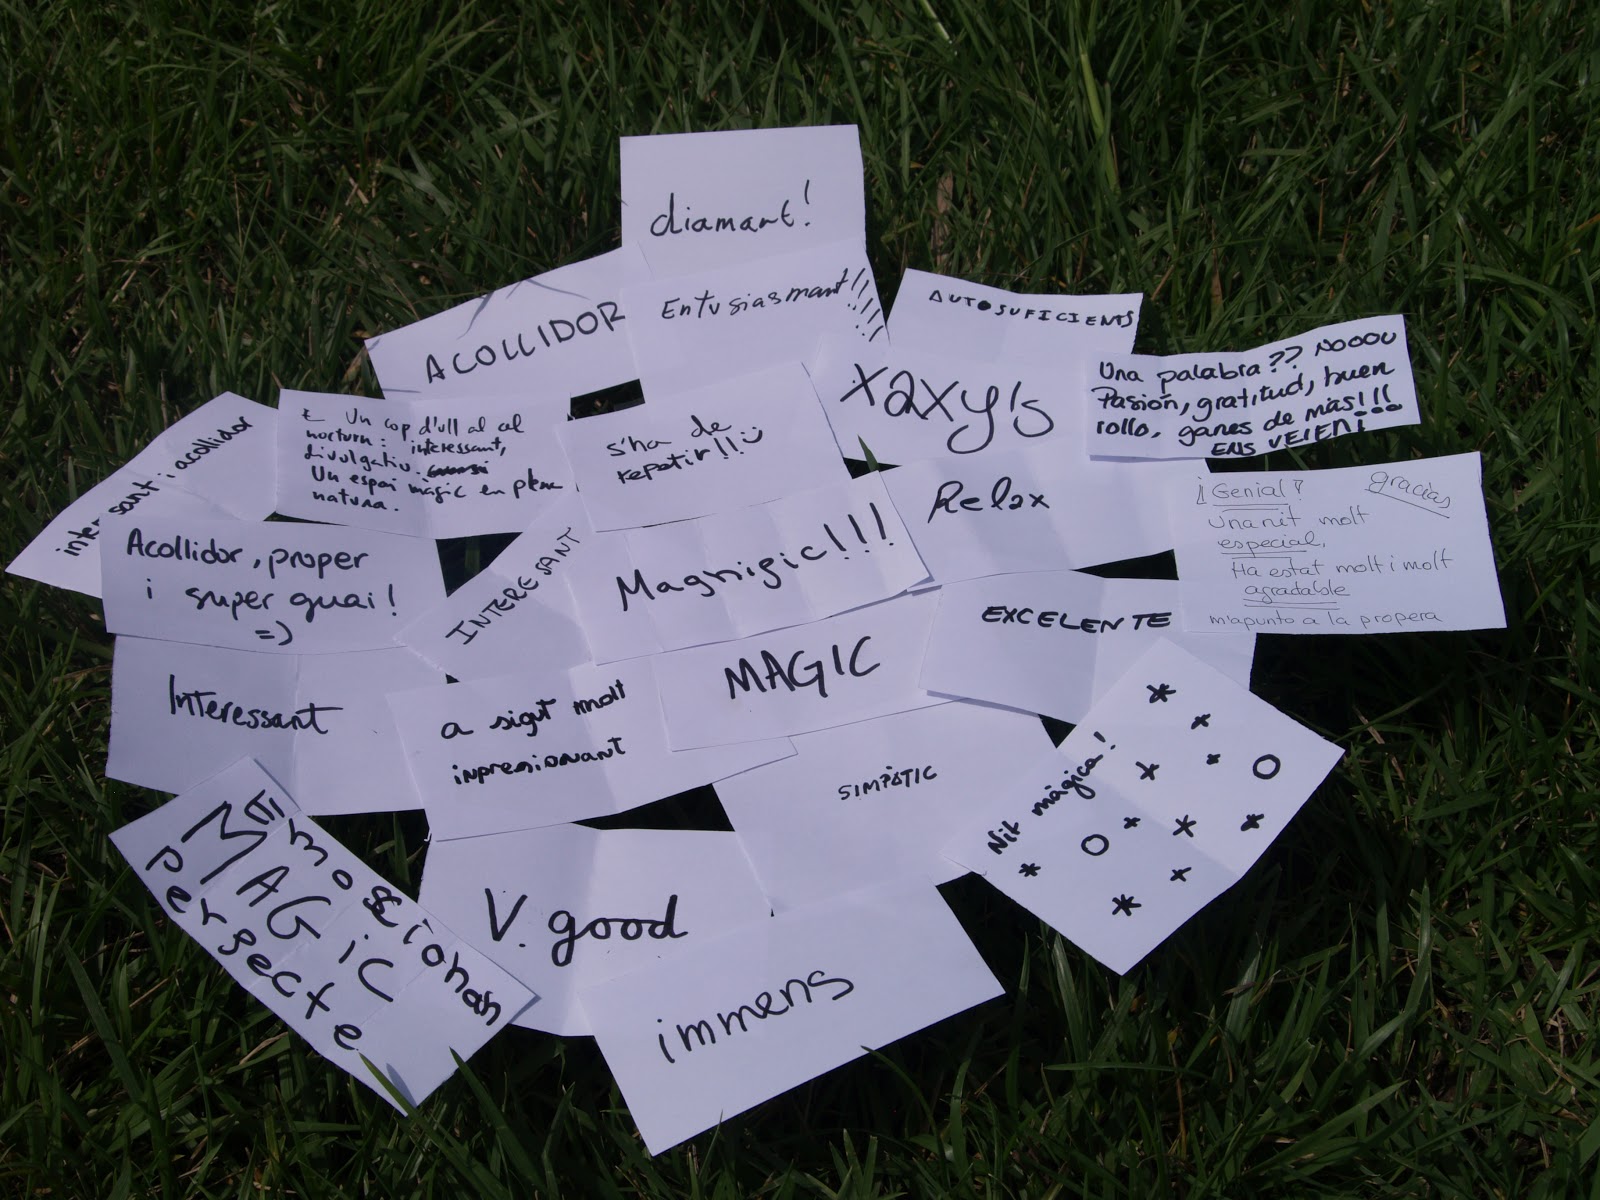 diamant!
Entusiasmant!!!!!
ACOLLIDOR
AUTOSUFICIENTS
xaxy's
Una palabra?? NOOOO
Pasión, gratitud, buen
rollo, ganes de más!!!
ENS VEIEM!...
interessant i acollidor
Un cop d'ull al cel
nocturn: interessant,
divulgatiu.
Un espai màgic en plena
natura.
s'ha de
repetir!!
Relax
¡¡Genial!
gracias
Una nit molt
especial,
Ha estat molt i molt
agradable
m'apunto a la propera
Acollidor, proper
i super guai!
=)
INTERESANT
Magnigic!!!
EXCELENTE
MAGIC
Interessant
a sigut molt
inpresionant
SIMPÀTIC
Nit màgica!
Emossionan
MAGiC
Persecte
V. good
immens